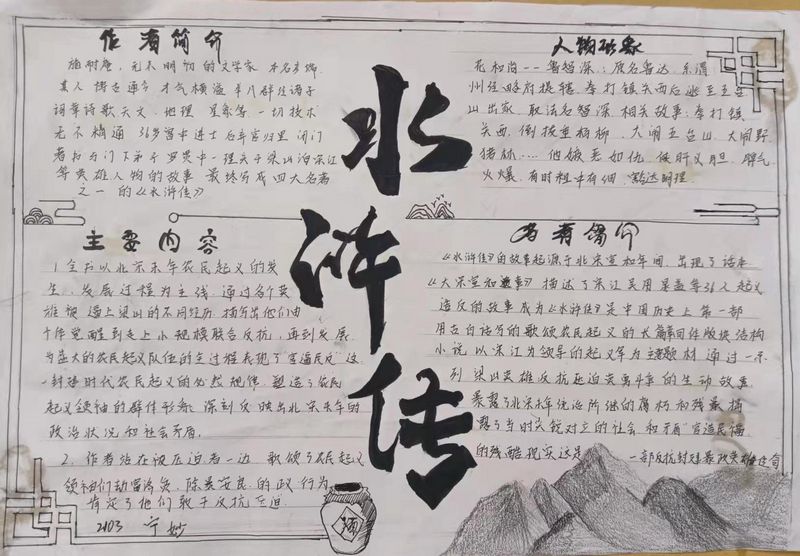 作者简介
施耐庵，元末明初的文学家 本名彦端
其人 博古通今 才气横溢 群经诸子
词章诗歌天文、地理、星象等 一切技术
无不精通 36岁 中进士后弃官归里 闭门
著书 与门下弟子罗贯中一 关于梁山泊宋江
等英雄人物的故事 最终写成四大名著
之一 的《水浒传》
人物形象
花和尚——鲁智深：原名鲁达、系渭
州经略府提辖，拳打镇关西后逃至五台
山出家，取法名智深，相关故事：拳打镇
关西，倒拔垂杨柳、大闹五台山、大闹野
猪林……他嫉恶如仇，侠肝义胆，脾气
火爆，有时粗中有细，豁达明理．
水浒传
主要内容
1.全书以北宋末年农民起义的发
生、发展过程为主线，通过各个英
雄被逼上梁山的不同经历，描写出他们由
个体觉醒到走上小规模联合反抗，再到发展
为盛大的农民起义队伍的全过程表现了“官逼民反”这
一封建时代农民起义的必然规律，塑造了农民
起义领袖的群体形象，深刻反映出北宋末年的
政治状况和社会矛盾．
2、作者站在被压迫者一边 歌颂了农民起义
领袖们劫富济贫、除暴安良的政 行为
肯定了他们敢于反抗压迫
2103 宁妙
酒
简介
《水浒传》的故事起源于北宋宣和年间，出现了话本
《大宋宣和遗事》描述了宋江 晁盖等36人起义
造反的故事 成为《水浒传》是中国历史上第一部
用古白话写的歌颂农民起义的长篇章回体版块结构
小说 以宋江为领导的起义军为主要题材 通过一系
列 梁山英雄反抗压迫 的生动故事
暴露了北宋末年统治阶级的腐朽和残暴 揭
露了当时尖锐对立的社会 和矛盾“官逼民反
的残酷现实这是 一部反抗封建暴政